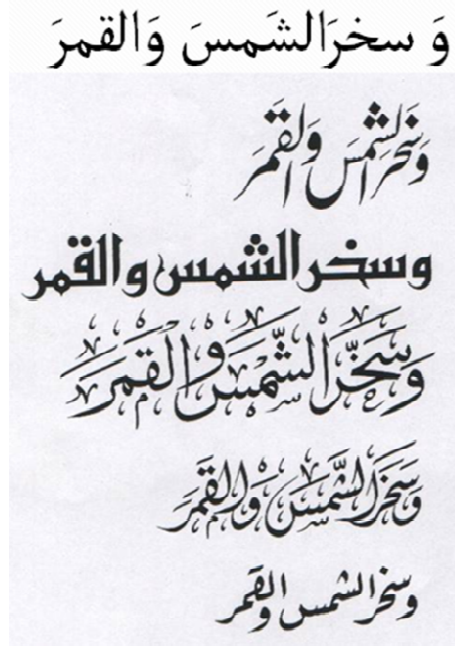 وَ سخرَالشَمسَ وَالقمرَ
وَسَخَرَ الشَمسَ وَالقَمَرَ
وسخر الشمس والقمر
وَسَخَّرَ الشَّمْسَ وَالْقَمَرَ
وَسَخَرَ الشَّمْسَ وَالْقَمَرَ
وسخر الشمس والقمر